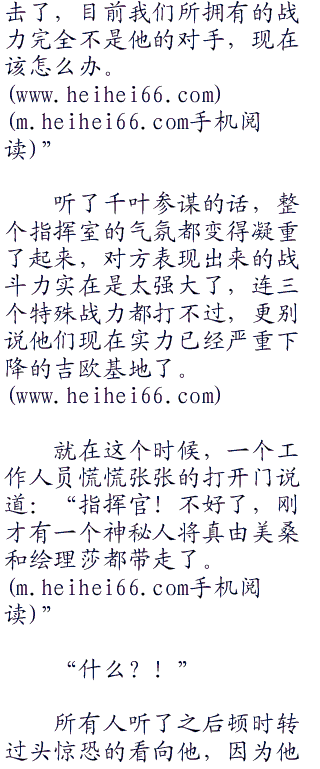 击了，目前我们所拥有的战
力完全不是他的对手，现在
该怎么办。
(www.heihei66.com)
(m.heihei66.com手机阅
读)”
听了千叶参谋的话，整
个指挥室的气氛都变得凝重
了起来，对方表现出来的战
斗力实在是太强大了，连三
个特殊战力都打不过，更别
说他们现在实力已经严重下
降的吉欧基地了。
(www.heihei66.com)
就在这个时候，一个工
作人员慌慌张张的打开门说
道：“指挥官！不好了，刚
才有一个神秘人将真由美桑
和绘理莎都带走了。
(m.heihei66.com手机阅
读)”
“什么？！”
所有人听了之后顿时转
过头惊恐的看向他，因为他